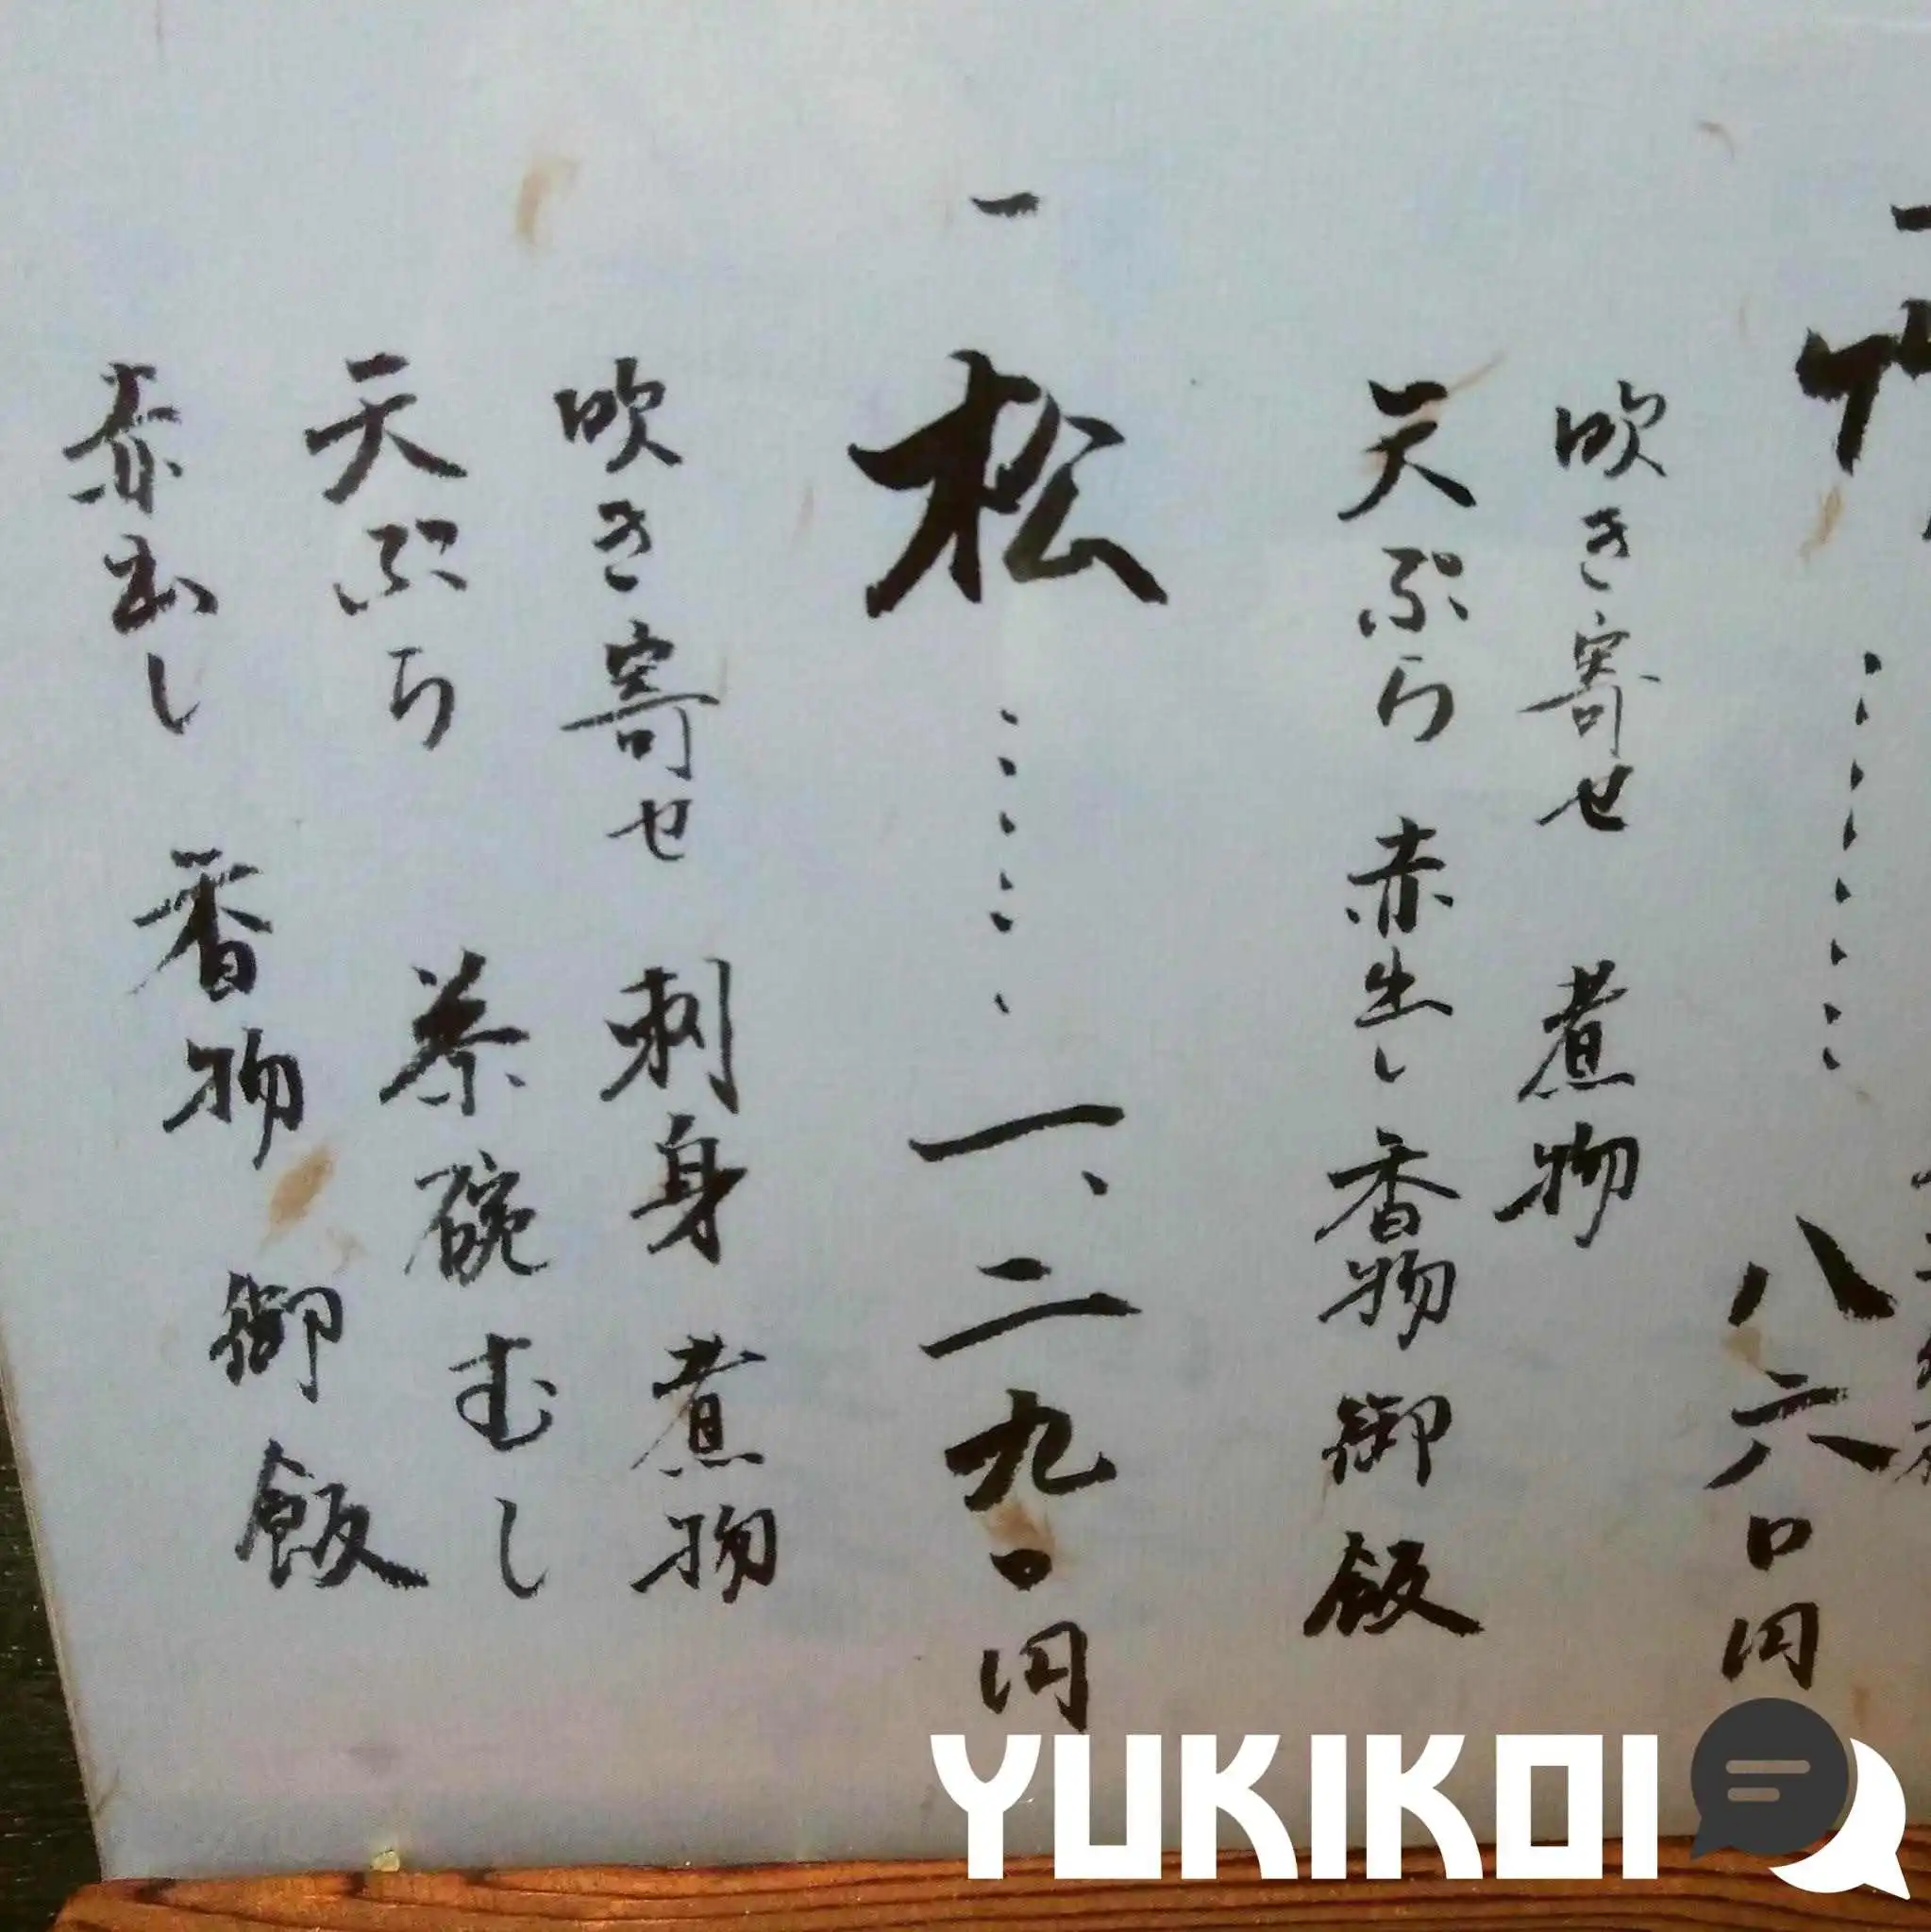 八六〇円
吹き寄せ 煮物
天ぷら 赤出し 香物 御飯
一 松 ・・・・・・・・ 一、二九〇円
吹き寄せ 刺身 煮物
天ぷら 茶碗むし
赤出し 香物 御飯
YUKIKOI